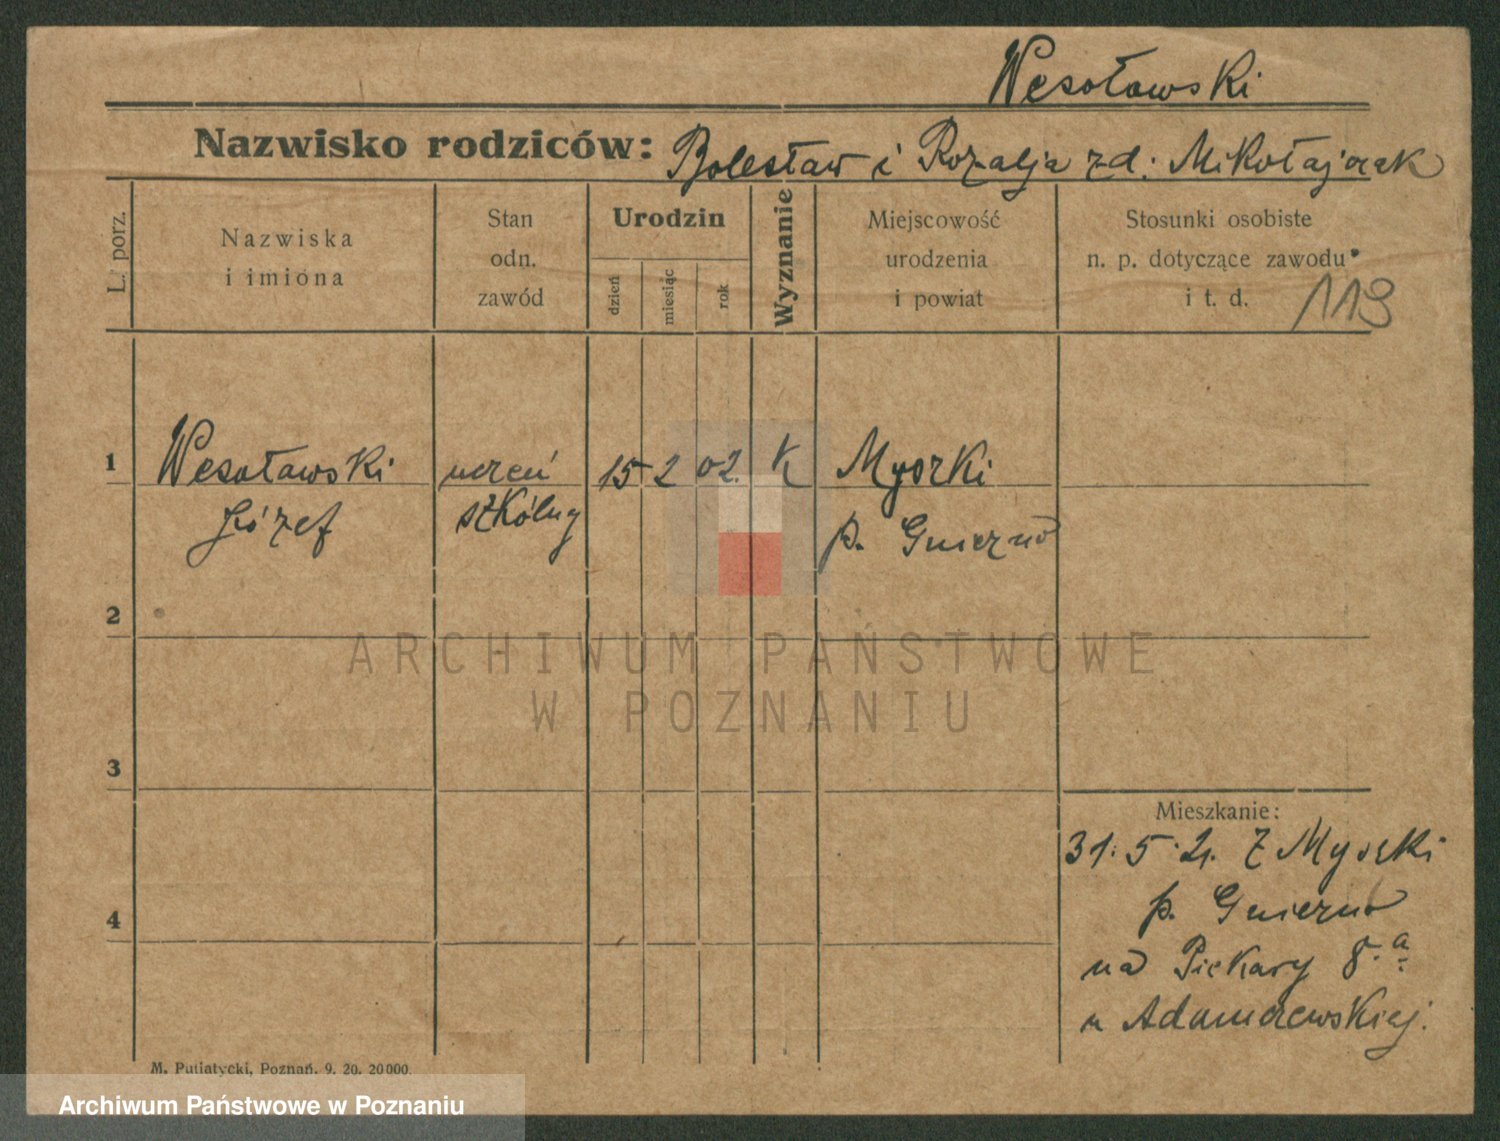 Wesołowski
Nazwisko rodziców: Bolesław i Rozalja zd: Mikołajczak
L. porz.
Nazwiska
i imiona
Stan
odn.
zawód
Urodzin
dzień
miesiąc
rok
Wyznanie
Miejscowość
urodzenia
i powiat
Stosunki osobiste
n. p. dotyczące zawodu
i t. d.
119
1 Wesołowski uczeń 15 2 02. K Myszki
Józef szkólny p. Gniezno
2
3
4
Mieszkanie:
31.5.21. Z Myszki
p. Gniezno
na Piekary 8.a
u Adamczewskiej.
M. Putiatycki, Poznań. 9. 20. 20000.
ARCHIWUM PAŃSTWOWE
W POZNANIU
Archiwum Państwowe w Poznaniu